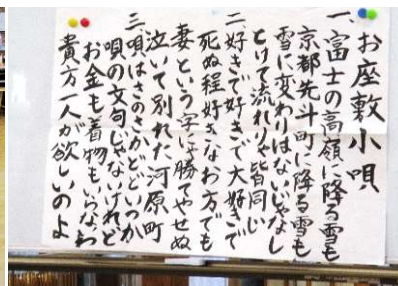 お座敷小唄
一、富士の高嶺に降る雪も
京都先斗町に降る雪も
雪に変わりはないじゃなし
とけて流れりゃ皆同じ
二、好きで好きで大好きで
死ぬ程好きなお方でも
妻という字に勝てやせぬ
泣いて別れた河原町
三、唄はさのさかどどいつか
唄の文句じゃないけれど
お金も着物もいらなわ
貴方一人が欲しいのよ